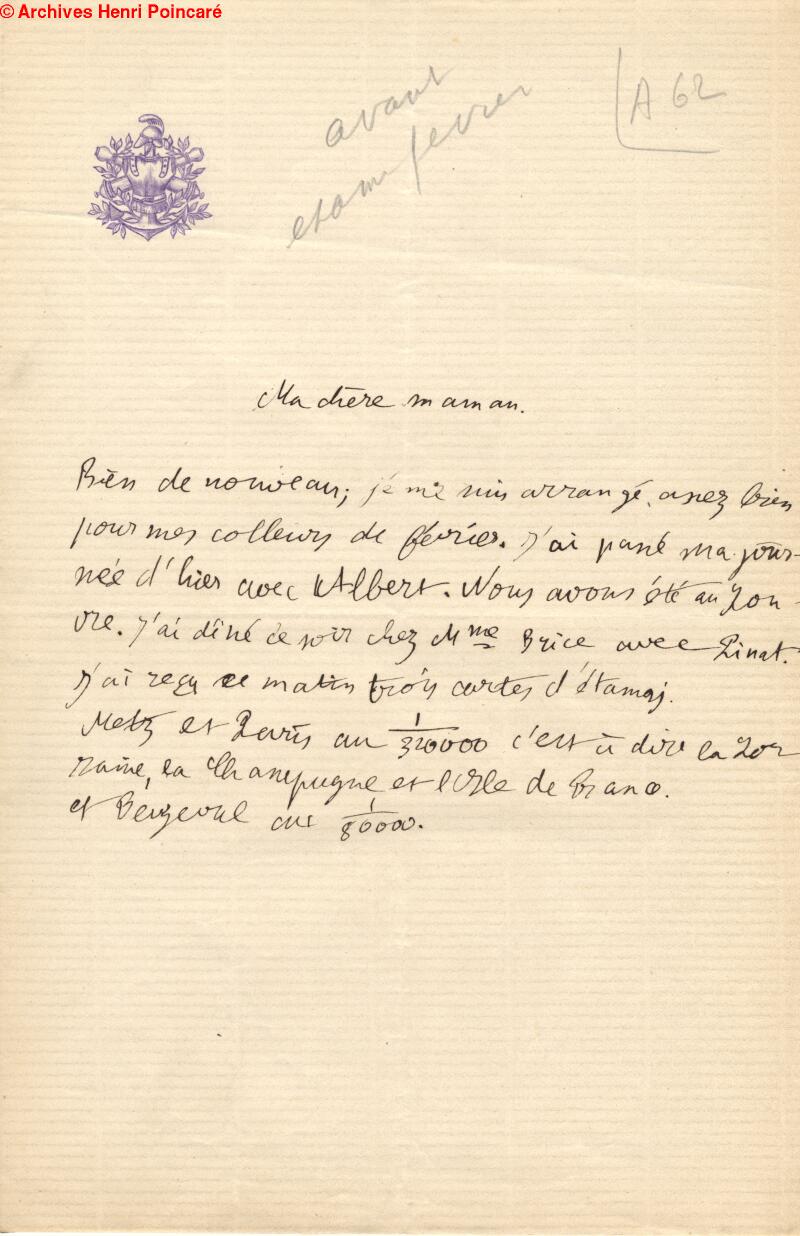 © Archives Henri Poincaré
avant
exam février
A 62
Ma chère maman.
Rien de nouveau; je me suis arrangé assez bien
pour mes colleurs de février. J'ai passé ma jour-
née d'hier avec Albert. Nous avons été au Lou-
vre. J'ai dîné ce soir chez Mme Brice avec Pinat.
J'ai reçu ce matin trois cartes d'étamaj.
Metz et Paris au 1/320000 c'est à dire la Lor
raine, la Champagne et l'Isle de France.
et au 1/80000.